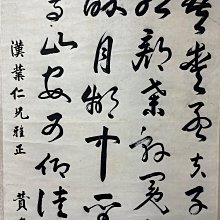 吾愛孟夫子
紅顏棄軒冕
醉月頻中聖
山安可仰徒
漢葉仁兄雅正
黃